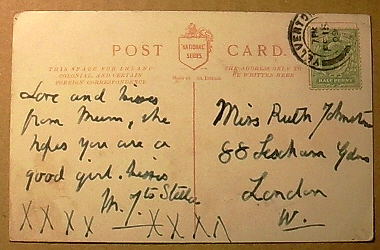 POST CARD.
"NATIONAL" SERIES.
THIS SPACE FOR INLAND
COLONIAL, AND CERTAIN
FOREIGN CORRESPONDENCE
THE ADDRESS ONLY TO
BE WRITTEN HERE
YELVERTON
HALF PENNY
Love and kisses
from Mum, she
hopes you are a
good girl. kisses
to Stella
X X X X X X X X
Miss Ruth Johnston
88 Lexham Gdns
London
W.